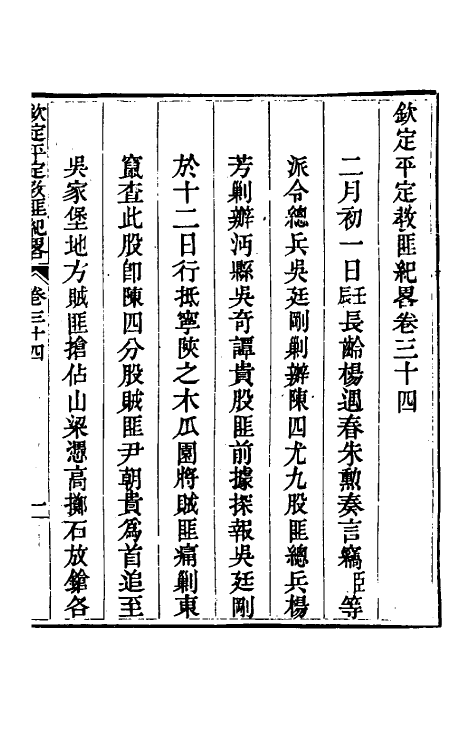 欽定平定教匪紀畧卷三十四
二月初一日壬辰長齡楊遇春朱勳奏言竊臣等
派令總兵吳廷剛剿辦陳四尤九股匪總兵楊
芳剿辦沔縣吳奇譚貴股匪前據探報吳廷剛
於十二日行抵寧陜之木瓜園將賊匪痛剿東
竄查此股卽陳四分股賊匪尹朝貴爲首追至
吳家堡地方賊匪搶佔山梁憑高擲石放鎗各
欽定平定教匪紀畧
卷三十四
一